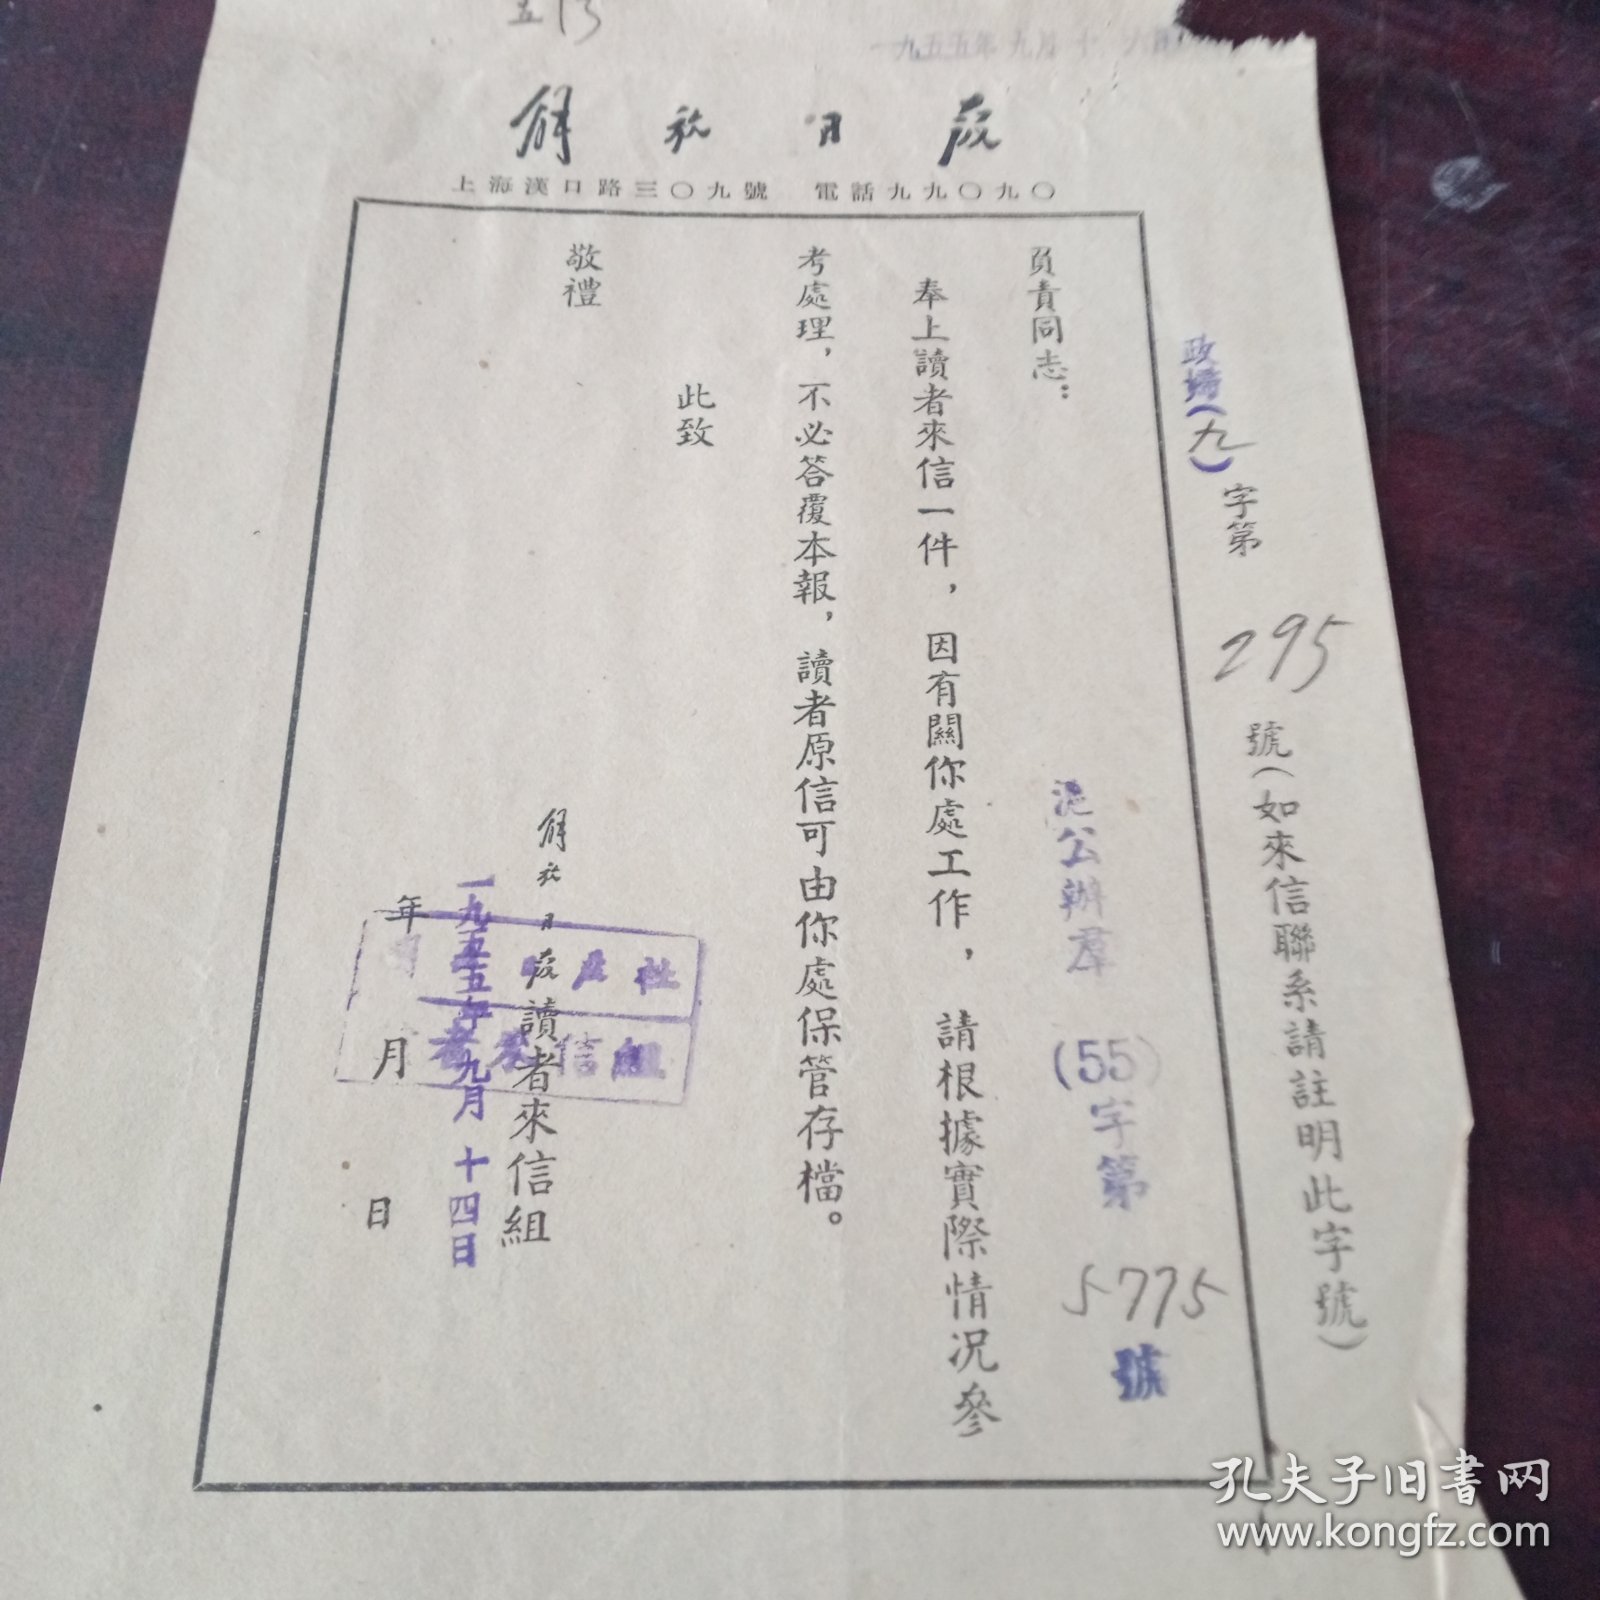 一九五五年九月十六日
解放日报
上海漢口路三〇九號 電話九九〇九〇
政(九)字第295號(如來信聯系請註明此字號)
公辦羣(55)字第5775號
負責同志：
奉上讀者來信一件，因有關你處工作，請根據實際情况參
考處理，不必答覆本報，讀者原信可由你處保管存檔。
此致
敬禮
解放日报讀者來信組
一九五五年九月十四日
年月日
报社
者來信組
孔夫子旧書网
www.kongfz.com